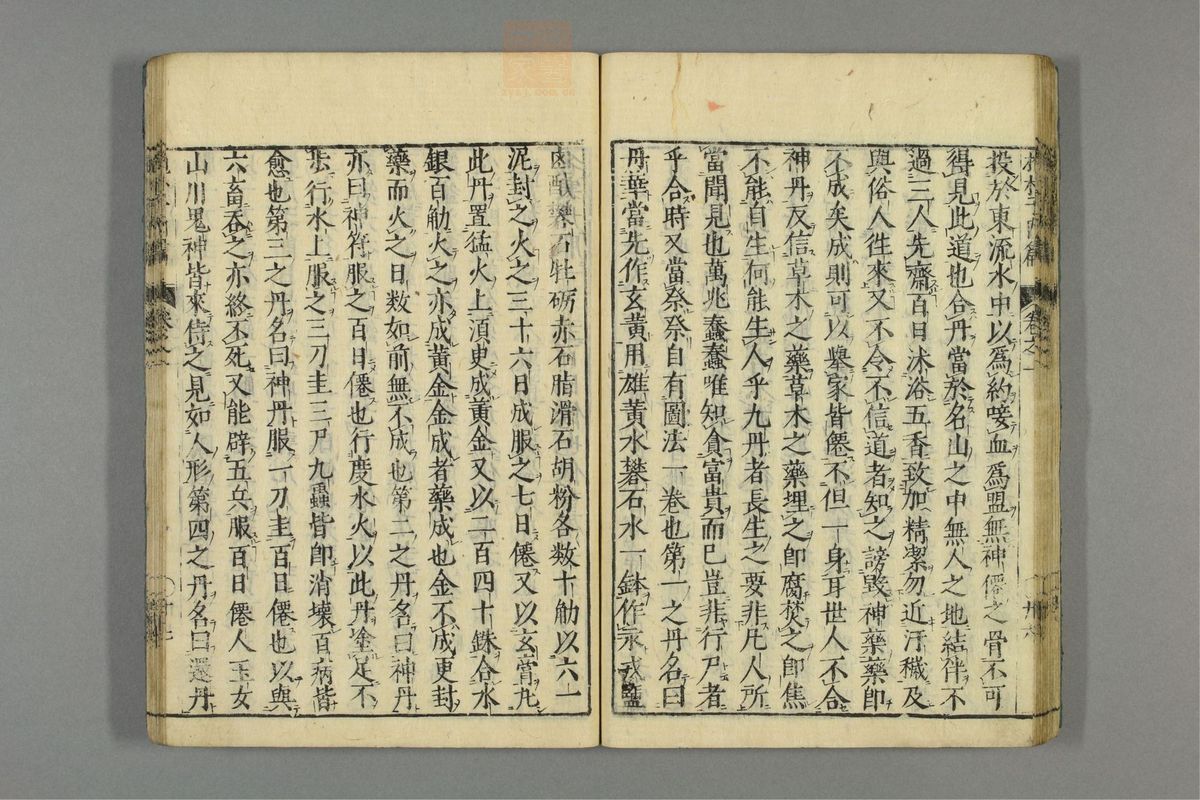 投於東流水中以爲約唼血爲盟無神僊之骨不可
得見此道也合丹當於名山之中無人之地結伴不
過三人先齋百日沐浴五香致加精潔勿近汙穢及
與俗人徃來又不令不信道者知之謗毀神藥藥即
不成矣成則可以舉家皆僊不但一身耳世人不合
神丹反信草木之藥草木之藥埋之即腐焚之即焦
不能自生何能生人乎九丹者長生之要非凡人所
當聞見也萬兆蠢蠢唯知貪富貴而已豈非行尸者
乎合時又當祭祭自有圖法一卷也第一之丹名曰
丹華當先作玄黃用雄黃水礬石水一鉢作汞戎鹽
鹵醎礬石牡礪赤石脂滑石胡粉各数十觔以六一
泥封之火之三十六日成服之七日僊又以玄膏丸
此丹置猛火上湏臾成黄金又以二百四十銖合水
銀百觔火之亦成黄金金成者藥成也金不成更封
藥而火之日数如前無不成也第二之丹名曰神丹
亦曰神符服之百日僊也行度水火以此丹塗足下
步行水上服之三刀圭三尸九蟲皆即消壞百病皆
愈也第三之丹名曰神丹服一刀圭百日僊也以與
六畜吞之亦終不死又能辟五兵服百日僊人玉女
山川鬼神皆來侍之見如人形第四之丹名曰還丹
卷之一